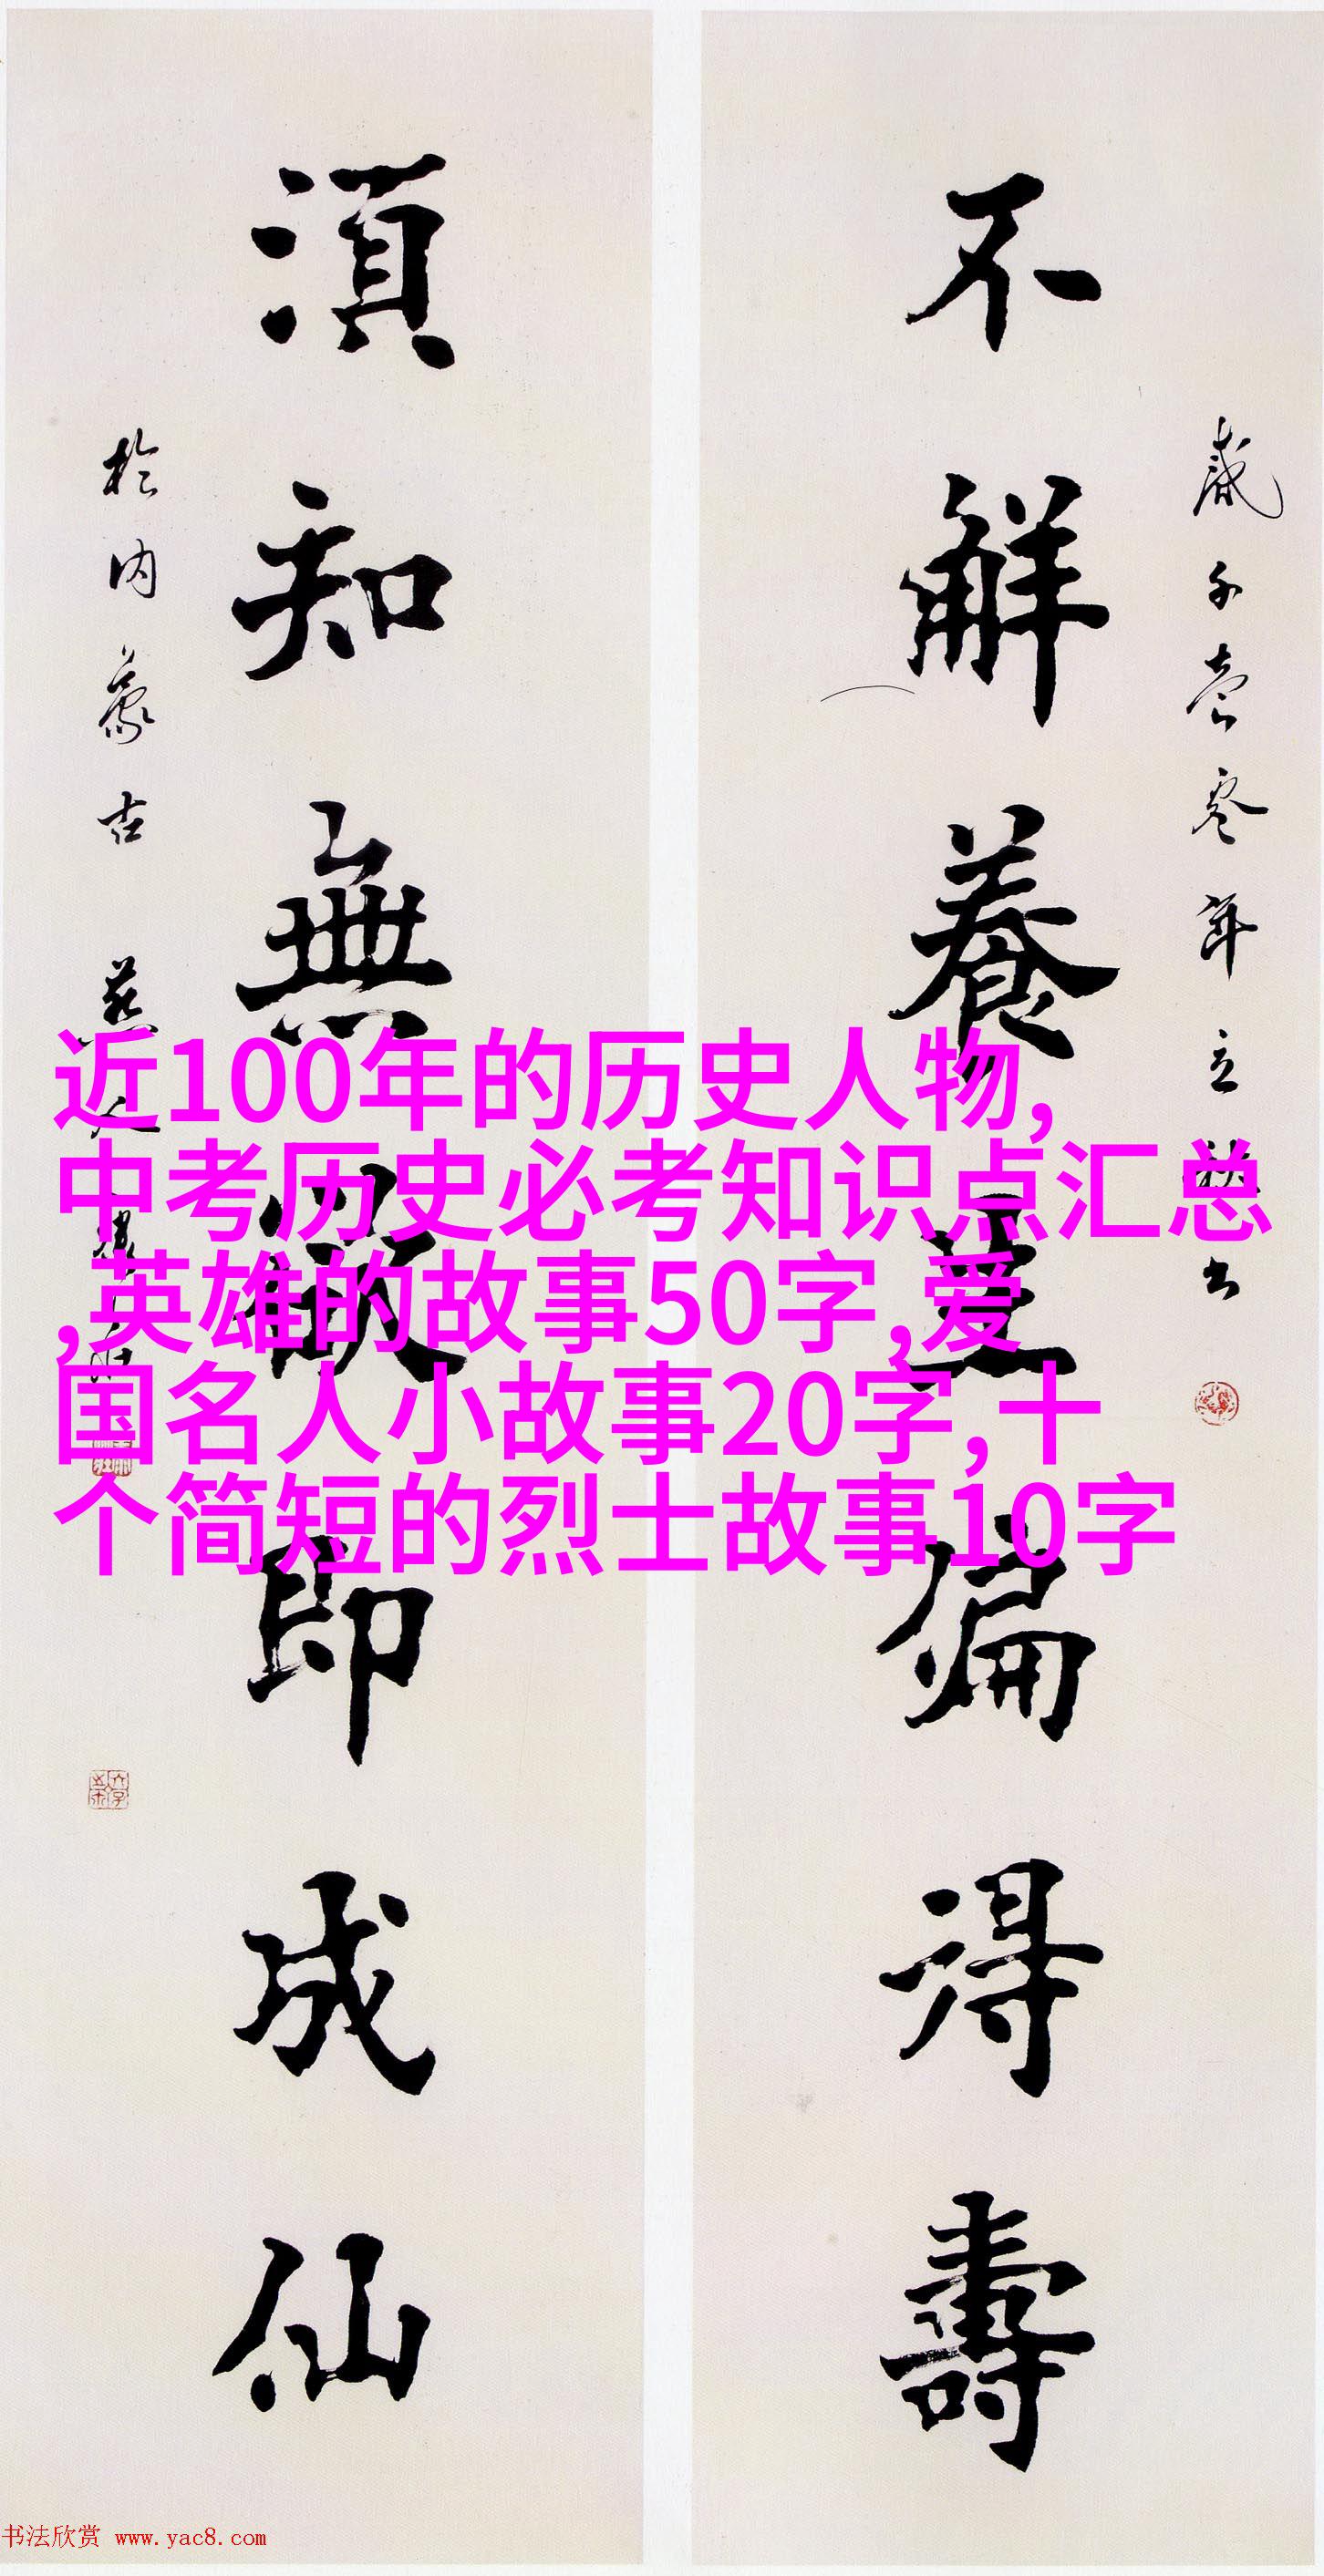 不解養生偏得壽
歲千壹零年立秋書
須知無欲即成仙
於內蒙古
近100年的历史人物,
中考历史必考知识点汇总
,英雄的故事50字,爱
国名人小故事20字,十
个简短的烈士故事10字
书法欣赏 www.yac8.com